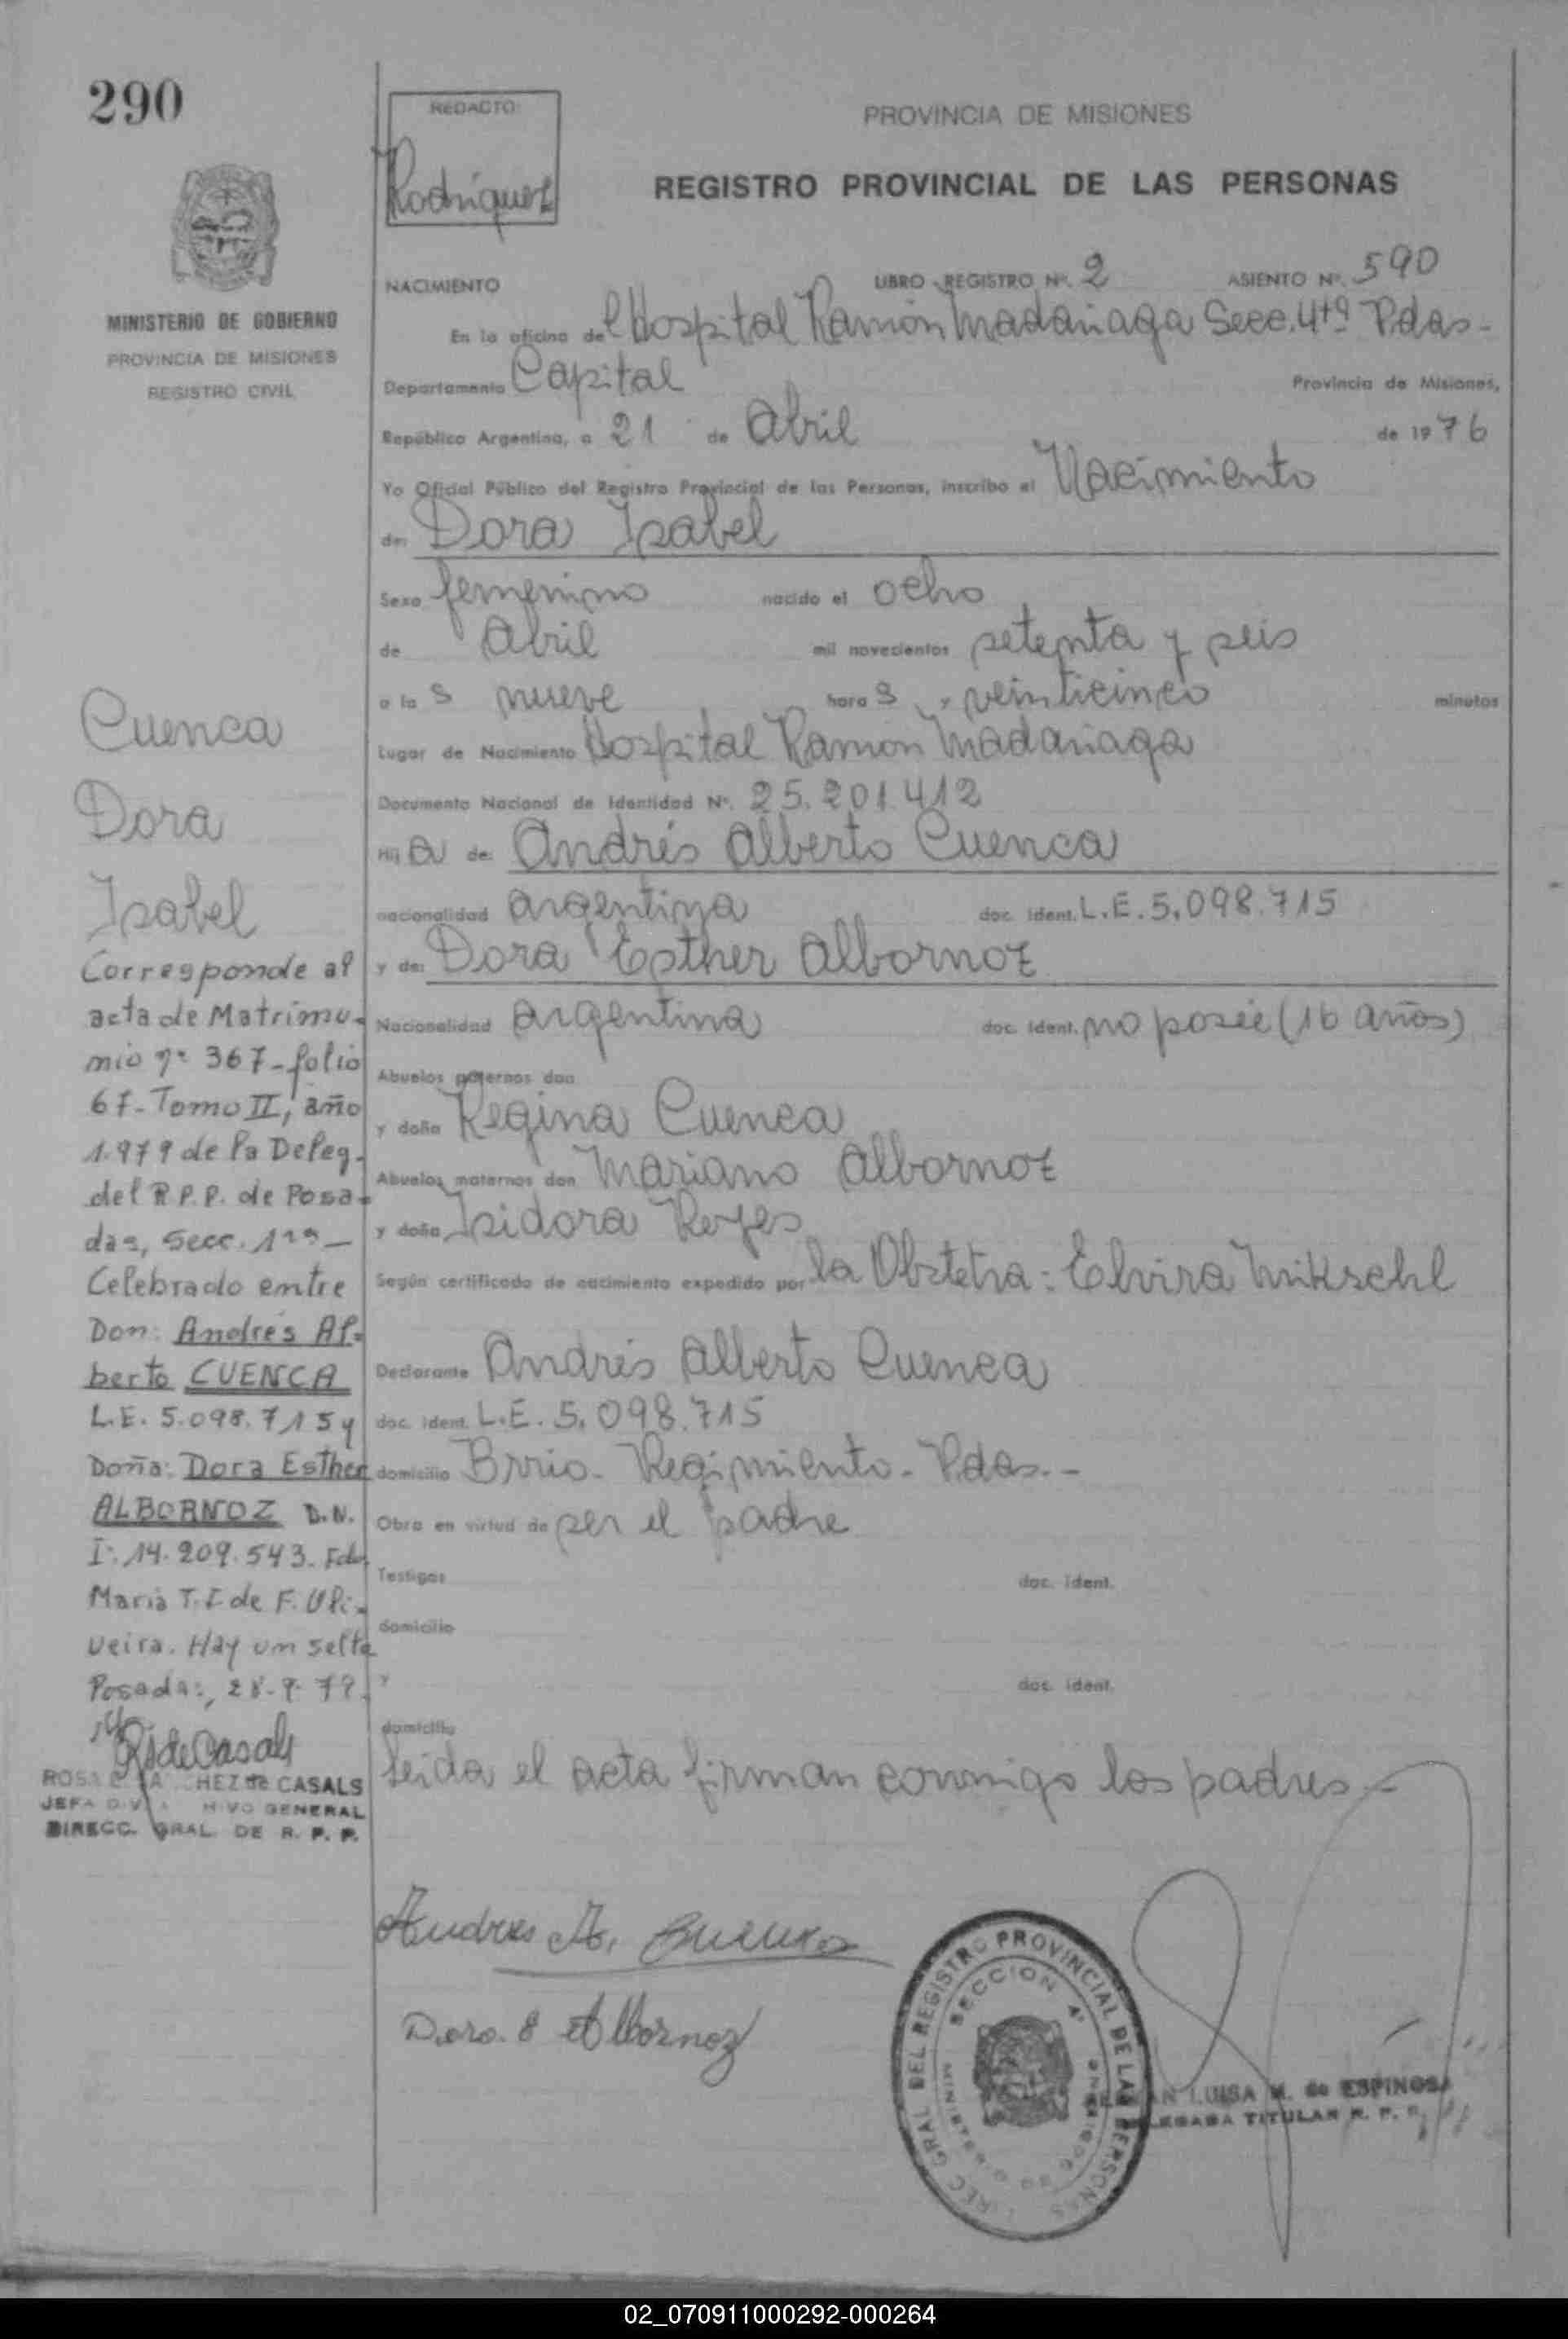 290
REDACTO:
Rodríguez
PROVINCIA DE MISIONES
REGISTRO PROVINCIAL DE LAS PERSONAS
MINISTERIO DE GOBIERNO
PROVINCIA DE MISIONES
REGISTRO CIVIL
NACIMIENTO LIBRO REGISTRO Nº. 2 ASIENTO Nº. 590
En la oficina del Hospital Ramón Madariaga Secc. 4tª Pdas-
Departamento Capital Provincia de Misiones,
República Argentina, a 21 de Abril de 1976
Yo Oficial Público del Registro Provincial de las Personas, inscribo el Nacimiento
de: Dora Isabel
Sexo femenino nacido el ocho
de Abril mil novecientos setenta y seis
a la s nueve hora s y veinticinco minutos
Lugar de Nacimiento Hospital Ramon Madariaga
Documento Nacional de Identidad Nº. 25.201.412
Hij a de: Andrés Alberto Cuenca
nacionalidad argentina doc. ident. L.E. 5.098.715
y de: Dora Esther Albornoz
Nacionalidad argentina doc. ident. no posee (16 años)
Abuelos paternos don
y doña Regina Cuenca
Abuelos maternos don Mariano Albornoz
y doña Isidora Reyes
Según certificado de nacimiento expedido por la Obstetra: Elvira Mikschl
Declarante Andrés Alberto Cuenca
doc. ident. L.E. 5.098.715
domicilio Brrio. Regimiento. Pdas.-
Obra en virtud de ser el padre
Testigos doc. ident.
domicilio
y doc. ident.
domicilio
Leida el acta firman conmigo los padres-
Cuenca
Dora
Isabel
Corresponde al
acta de Matrimo-
nio nº 367-folio
67-Tomo II, año
1.979 de la Deleg.
del R.P.P. de Posa-
das, Secc. 1ra-
Celebrado entre
Don: Andrés Al-
berto CUENCA
L.E. 5.098.715 y
Doña: Dora Esther
ALBORNOZ D.N.
I: 14.209.543. Fdo.
Maria T. I de F. Oli-
veira. Hay un sello
Posadas,
R S de Casals
HEZ de CASALS
GENERAL
DIRECC. GRAL. DE R. P. P.
Andres A. Cuenca
Dora E Albornoz
DEL REGISTRO PROVINCIAL DE LAS PERSONAS
SECCION 4ª
LUISA M. de ESPINOSA
TITULAR R. P. P.
02_070911000292-000264